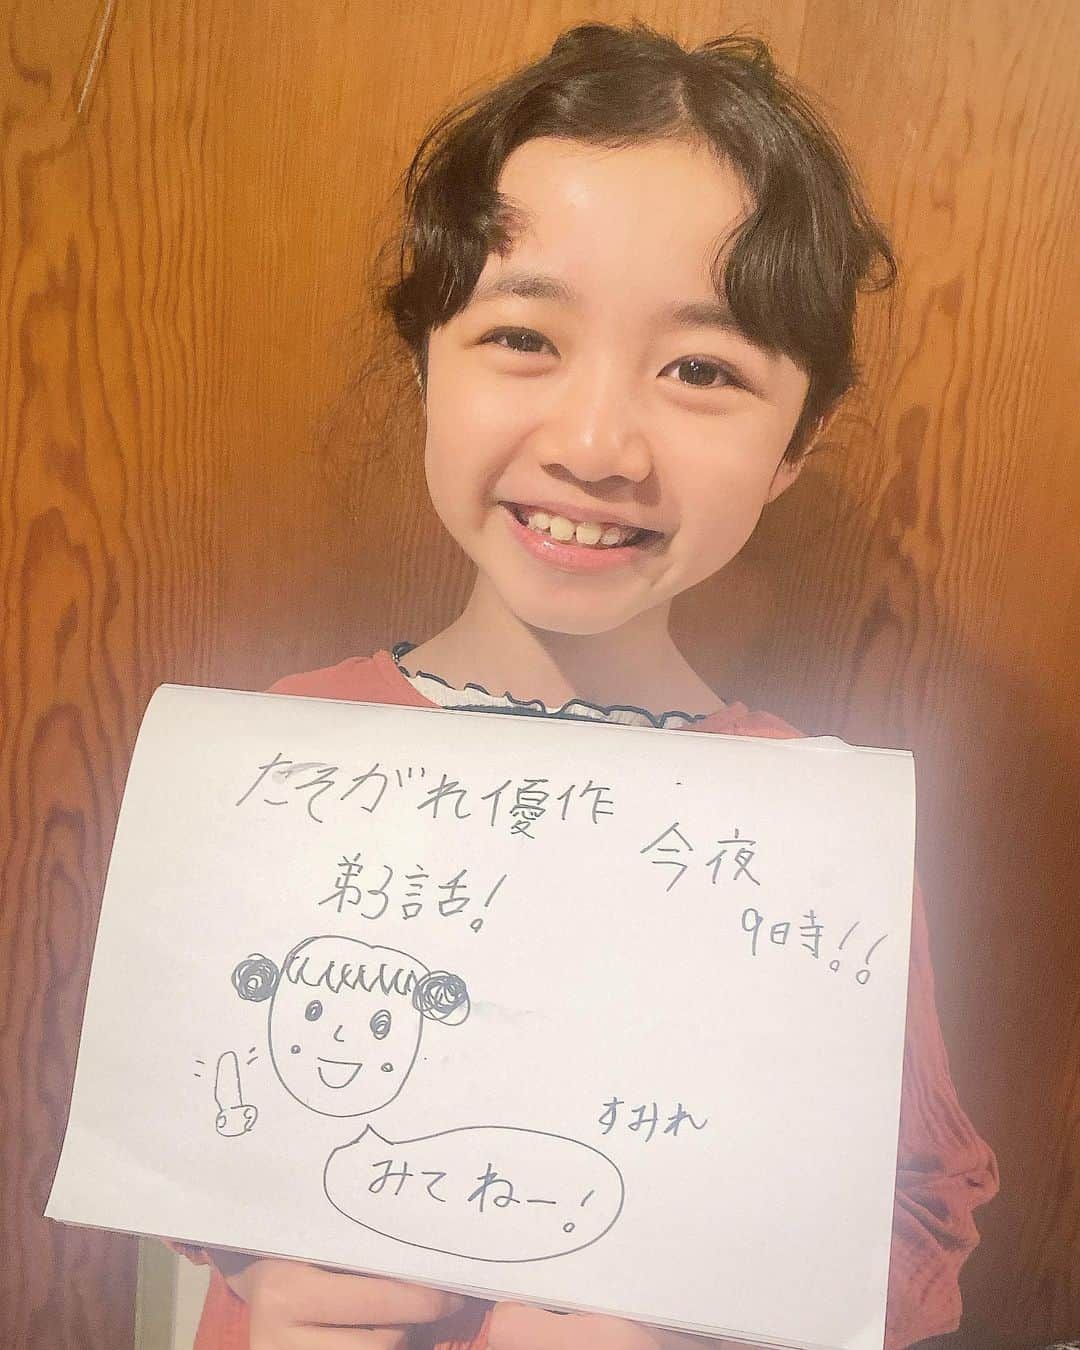 たそがれ優作
第3話!
今夜
9時!!
すみれ
みてねー!